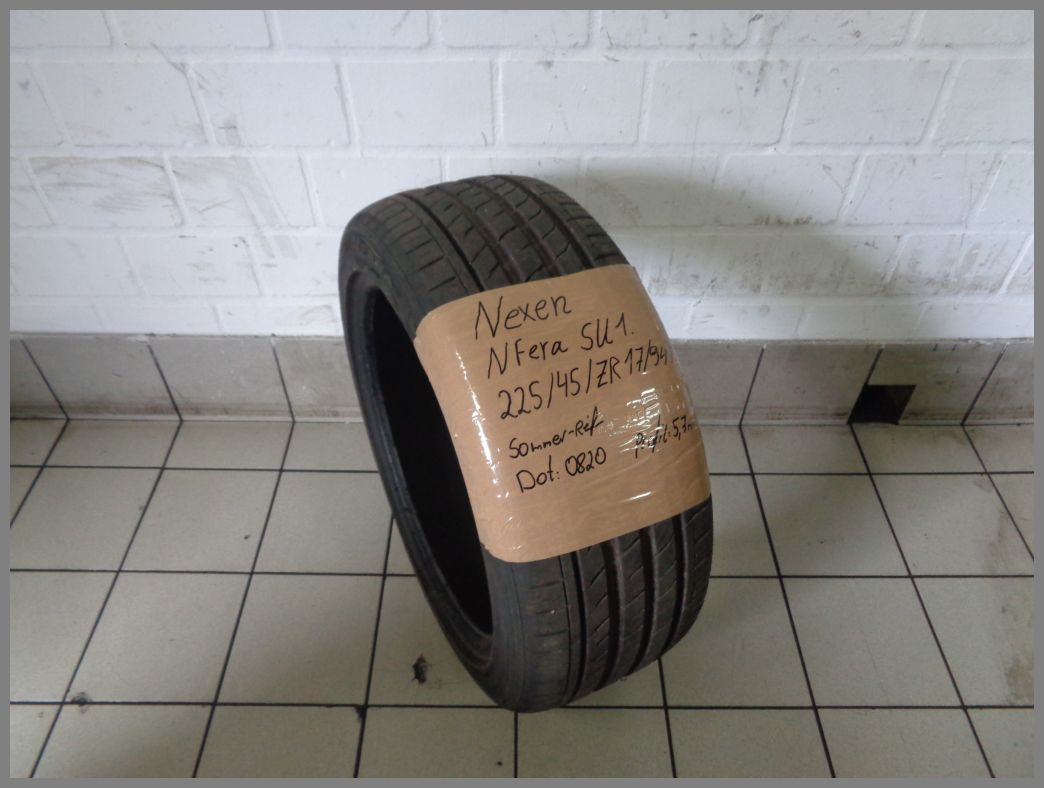 Nexen
NFera SU1.
225/45/ZR17/94
Sommer-Reif
Dot: 0820 Profil: 5,3